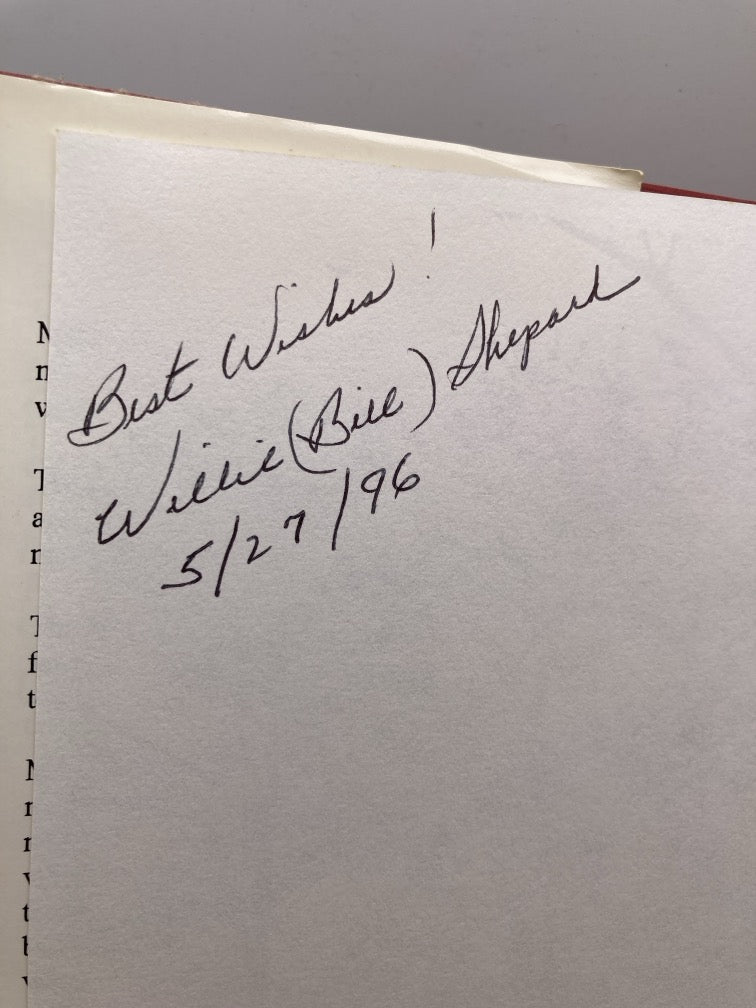 Best Wishes!
Willie (Bill) Shepard
5/27/96